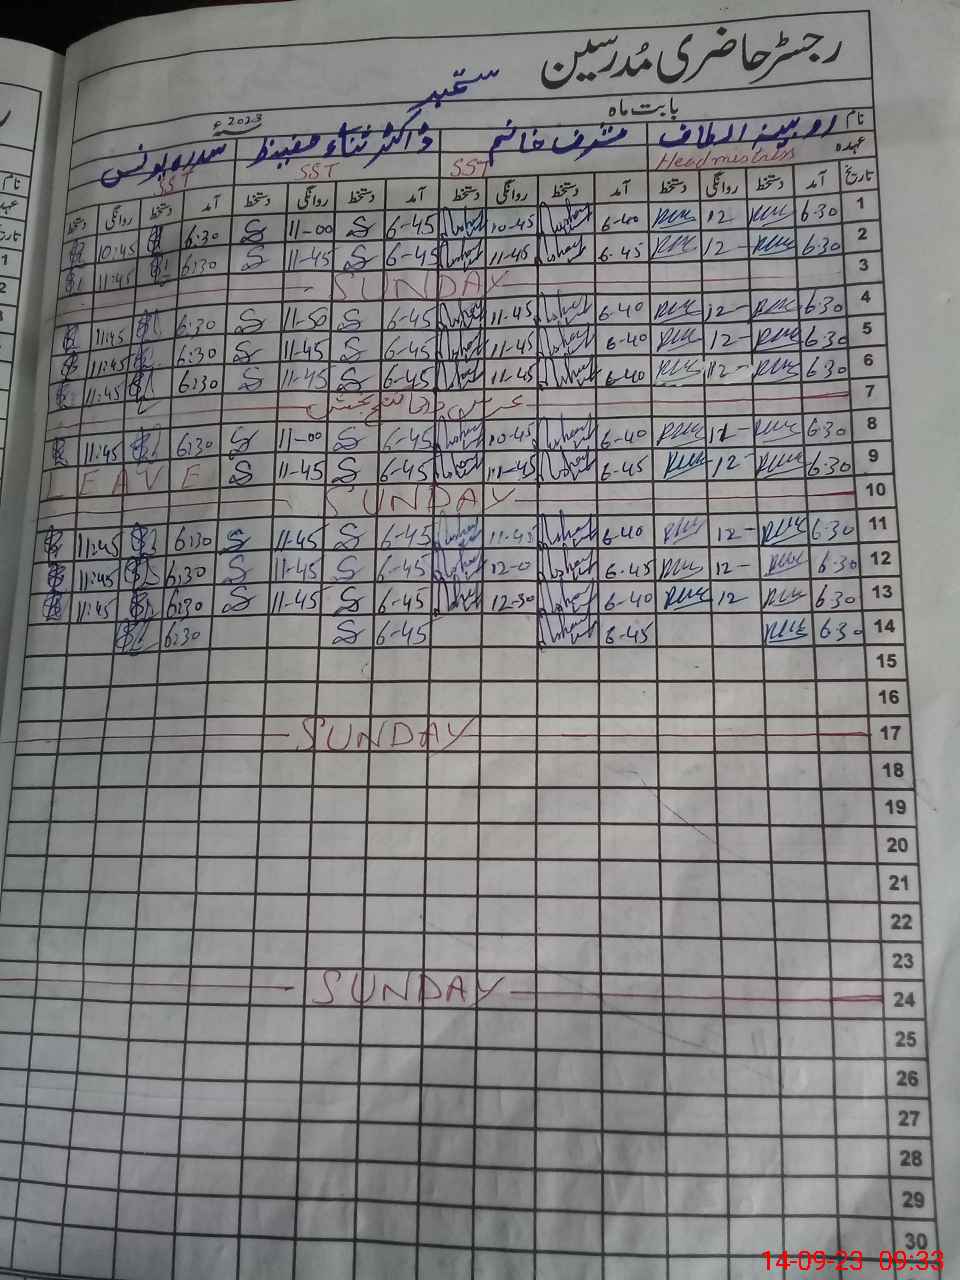 رجسٹر حاضری مُدرسین
بابت ماہ ستمبر 2023ء
نام روبینہ الطاف مشرف خانم ڈاکٹر ثناء حفیظ سدرہ یونس
عہدہ Headmistress SST SST SST
تاریخ آمد دستخط روانگی دستخط آمد دستخط روانگی دستخط آمد دستخط روانگی دستخط آمد دستخط روانگی دستخط
1 6:30 12 6-40 10-45 6-45 11-00 6:30 10:45
2 6:30 12- 6-45 11-45 6-45 11-45 6:30 11:45
3 SUNDAY
4 6:30 12- 6-40 11-45 6-45 11-50 6:30 11:45
5 6:30 12- 6-40 11-45 6-45 11-45 6:30 11:45
6 6:30 12- 6-40 11-45 6-45 11-45 6:30 11:45
7
8 6:30 6-40 10-45 6-45 11-00 6:30 11:45
9 6:30 12- 6-45 11-45 6-45 11-45 LEAVE
10 SUNDAY
11 6:30 12- 6-40 11-45 6-45 11-45 6:30 11:45
12 6:30 12- 6-45 12-0 6-45 11-45 6:30 11:45
13 6:30 12 6-40 12-30 6-45 11-45 6:30 11:45
14 6:30 6-45 6-45 6:30
15
16
17 SUNDAY
18
19
20
21
22
23
24 SUNDAY
25
26
27
28
29
30
14-09-23 09:33